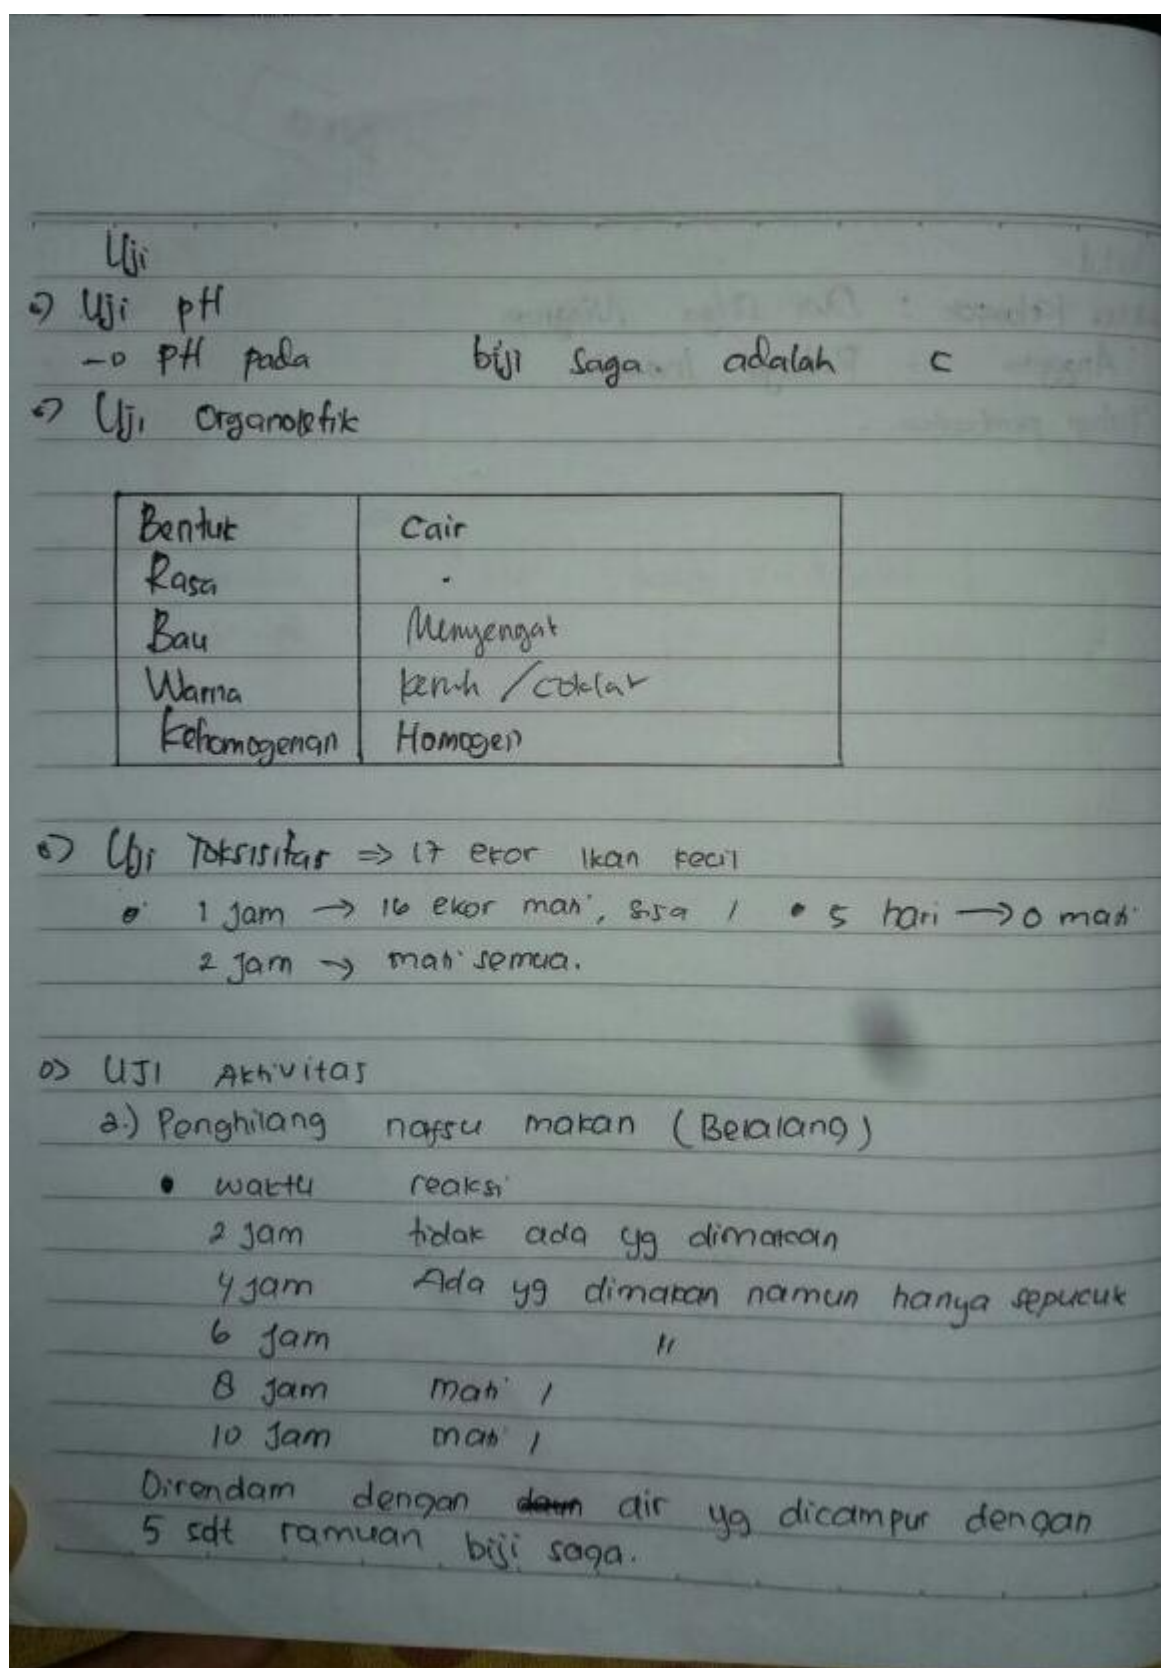 Uji
Uji pH
pH pada biji saga adalah
Uji Organoleftik
Bentuk Cair
Rasa -
Bau Menyengat
Warna keruh / coklat
Kehomogenan Homogen
Uji Toksisitas => 17 ekor ikan kecil
• 1 jam → 16 ekor mati, sisa 1 • 5 hari → 0 mati
2 jam → mati semua.
UJI Aktivitas
2.) Penghilang nafsu makan (Belalang)
• waktu reaksi
2 jam tidak ada yg dimakan
4 jam Ada yg dimakan namun hanya sepucuk
6 jam "
8 jam mati 1
10 jam mati 1
Direndam dengan air yg dicampur dengan
5 sdt ramuan biji saga.